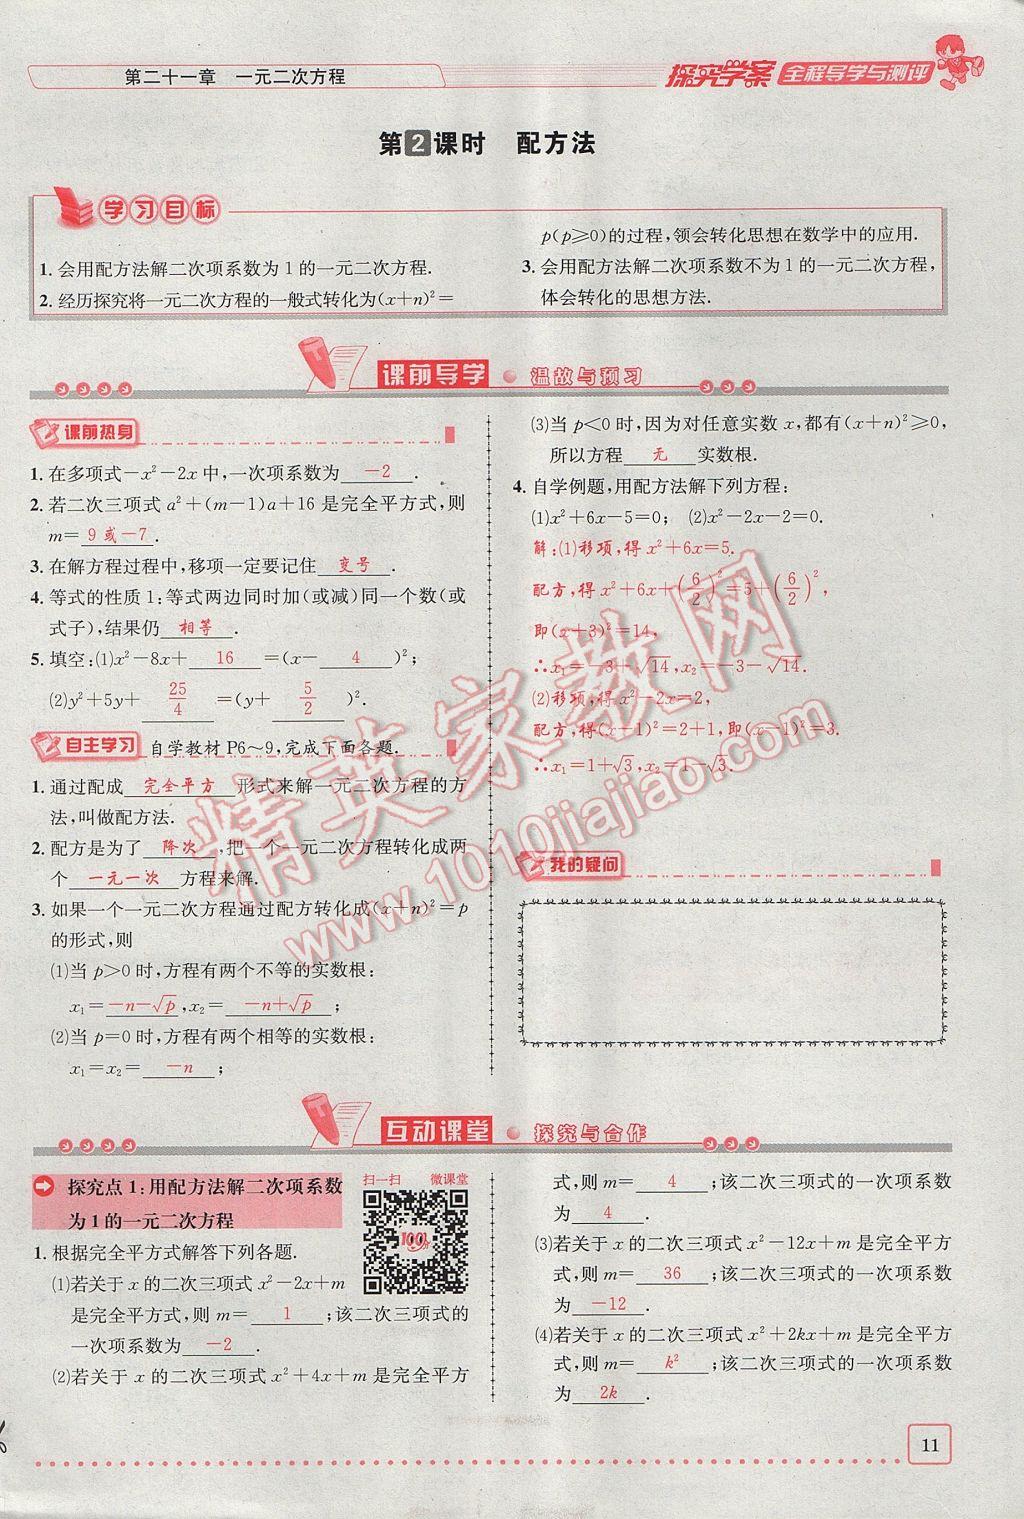 第二十一章　一元二次方程
探究学案 全程导学与测评
第2课时　配方法
学习目标
1. 会用配方法解二次项系数为1的一元二次方程.
2. 经历探究将一元二次方程的一般式转化为(x+n)²=
p(p≥0)的过程,领会转化思想在数学中的应用.
3. 会用配方法解二次项系数不为1的一元二次方程,
体会转化的思想方法.
课前导学 温故与预习
课前热身
1. 在多项式-x²-2x中,一次项系数为 -2 .
2. 若二次三项式a²+(m-1)a+16是完全平方式,则
m= 9或-7 .
3. 在解方程过程中,移项一定要记住 变号 .
4. 等式的性质1:等式两边同时加(或减)同一个数(或
式子),结果仍 相等 .
5. 填空:(1)x²-8x+ 16 =(x- 4 )²;
(2)y²+5y+ 25/4 =(y+ 5/2 )².
自主学习 自学教材P6~9,完成下面各题.
1. 通过配成 完全平方 形式来解一元二次方程的方
法,叫做配方法.
2. 配方是为了 降次 ,把一个一元二次方程转化成两
个 一元一次 方程来解.
3. 如果一个一元二次方程通过配方转化成(x+n)²=p
的形式,则
(1)当p>0时,方程有两个不等的实数根:
x₁= -n-√p ,x₂= -n+√p ;
(2)当p=0时,方程有两个相等的实数根:
x₁=x₂= -n ;
(3)当p<0时,因为对任意实数x,都有(x+n)²≥0,
所以方程 无 实数根.
4. 自学例题,用配方法解下列方程:
(1)x²+6x-5=0;　(2)x²-2x-2=0.
解:(1)移项,得x²+6x=5.
配方,得x²+6x+(6/2)²=5+(6/2)²,
即(x+3)²=14,
∴x₁=-3+√14,x₂=-3-√14.
(2)移项,得x²-2x=2,
配方,得(x-1)²=2+1,即(x-1)²=3.
∴x₁=1+√3,x₂=1-√3.
我的疑问
互动课堂 探究与合作
探究点1:用配方法解二次项系数
为1的一元二次方程
扫一扫 微课堂
100分
1. 根据完全平方式解答下列各题.
(1)若关于x的二次三项式x²-2x+m
是完全平方式,则m= 1 ;该二次三项式的
一次项系数为 -2 .
(2)若关于x的二次三项式x²+4x+m是完全平方
式,则m= 4 ;该二次三项式的一次项系数
为 4 .
(3)若关于x的二次三项式x²-12x+m是完全平方
式,则m= 36 ;该二次三项式的一次项系数
为 -12 .
(4)若关于x的二次三项式x²+2kx+m是完全平方
式,则m= k² ;该二次三项式的一次项系数
为 2k .
11
精英家教网
www.1010jiajiao.com